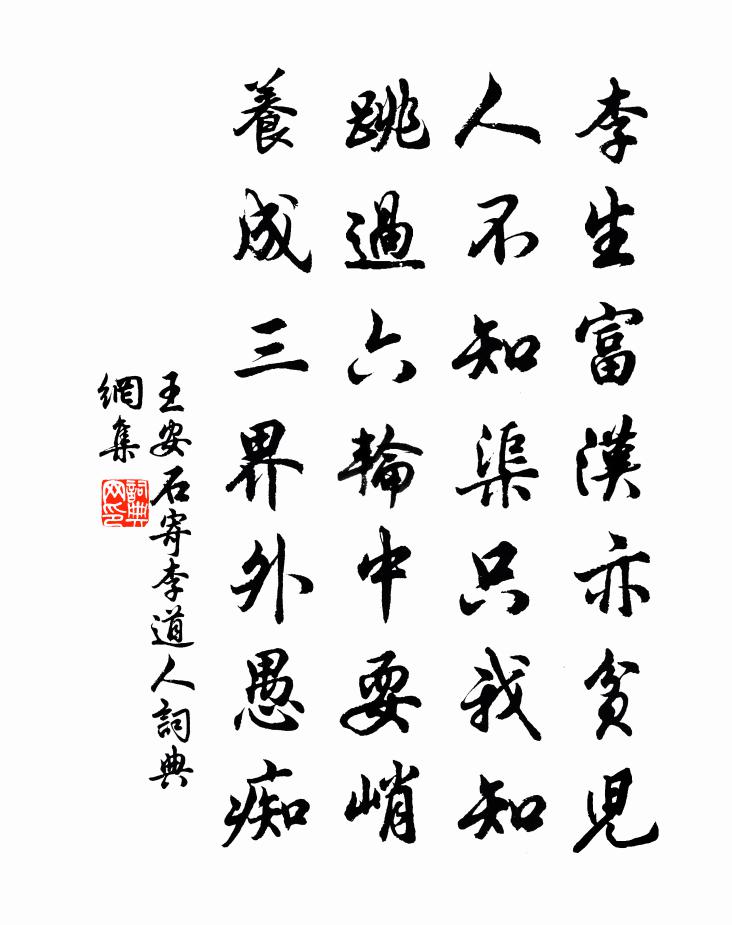 李生富漢亦貧兒
人不知渠只我知
跳過六輪中耍峭
養成三界外愚痴
王安石寄李道人詞典
網集
詞典
网印